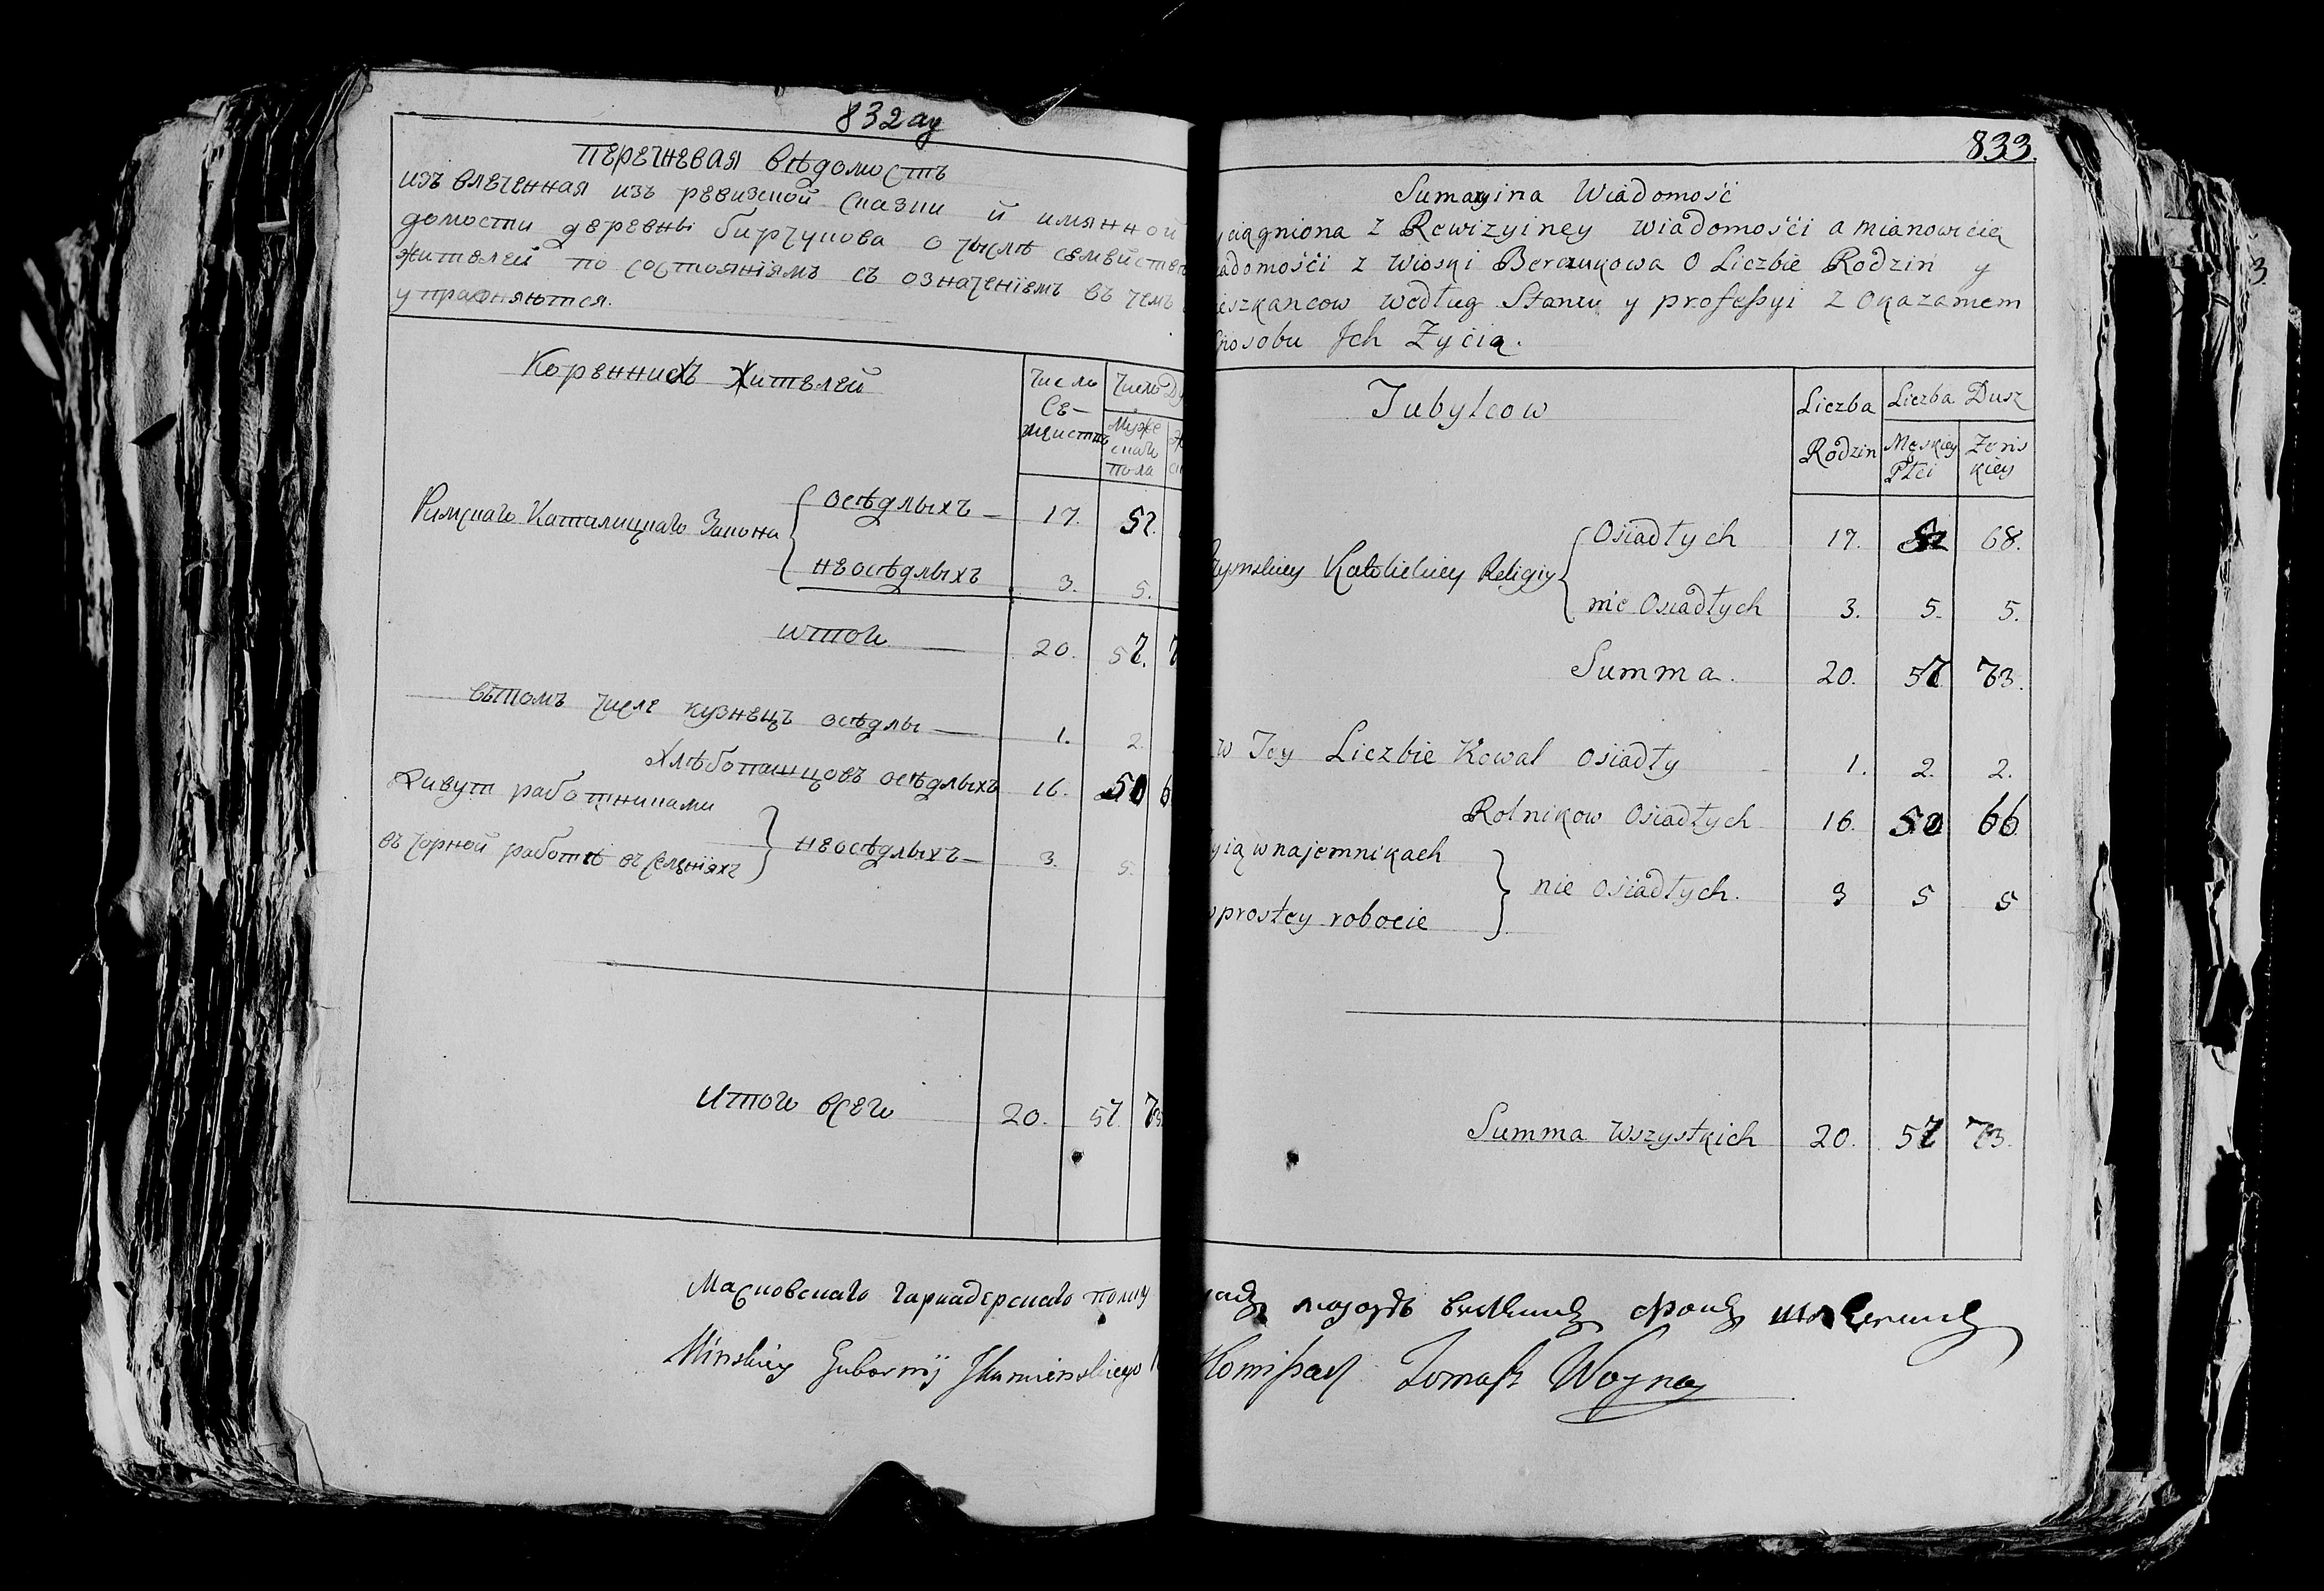 832 ау
перечневая вѣдомость
изъ влеченная изъ ревизской сказки й имянной
домости деревны бирчукова о числѣ семействъ
жителей по состоянїямъ съ означенїемъ въ чемъ
упражняются.
Кореннихъ жителей
Число Се-мействъ
Число
Мужескаго пола
Римскаго Католицкаго Закона
осѣдлыхъ 17. 52.
неосѣдлыхъ 3. 5.
итого 20. 57.
вътомъ числе кузнецъ осѣдлы 1. 2.
Хлѣбопашцовъ осѣдлыхъ 16. 50
Живут работниками
въ чорной работѣ въ селенїяхъ
неосѣдлыхъ 3. 5.
Итого всего 20. 57. 73
Московскаго гарнадерскаго полку
Minskiey Gubernij Jhumenskiego
833.
Sumaryina Wiadomość
ciągniona z Rewizyiney wiadomośći a mianowicie
adomośći z Wioski Berczukowa O Liczbie Rodzin y
ieszkancow według Stanu y profeßyi z Okazaniem
Sposobu Jch Zycia.
Tubylcow
Liczba Rodzin
Liczba Dusz
Męskiey Płci
Zens kiey
Rzymskiey Katolickiey Religiy
Osiadłych 17. 52 68.
nie Osiadłych 3. 5. 5.
Summa. 20. 57 73.
w Tey Liczbie Kowal osiadły 1. 2. 2.
Rolnikow Osiadłych 16. 50 66
w najemnikach
prostey robocie
nie osiadłych. 3 5 5
Summa wszystkich 20. 57 73.
маɪоръ
Komißarz Tomasz Woyna